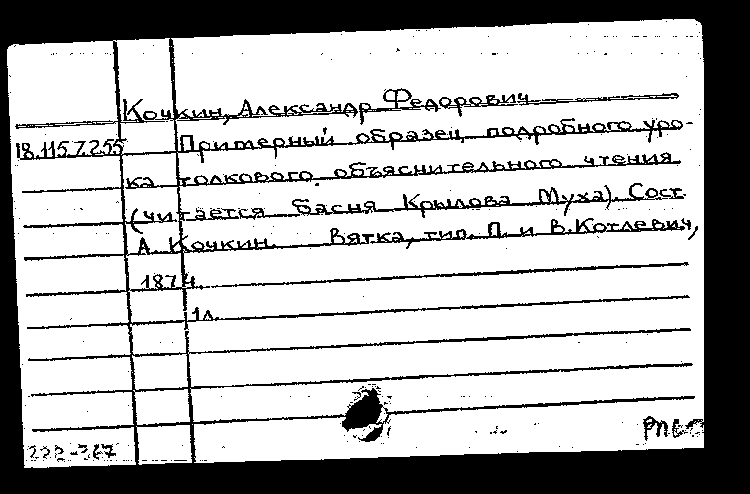 Кочкин, Александр Федорович
18.115.7.255 Примерный образец подробного уро-
ка толкового объяснительного чтения
(читается басня Крылова Муха). Сост.
А. Кочкин. Вятка, тип. П. и В. Котлевич,
1874.
1л.